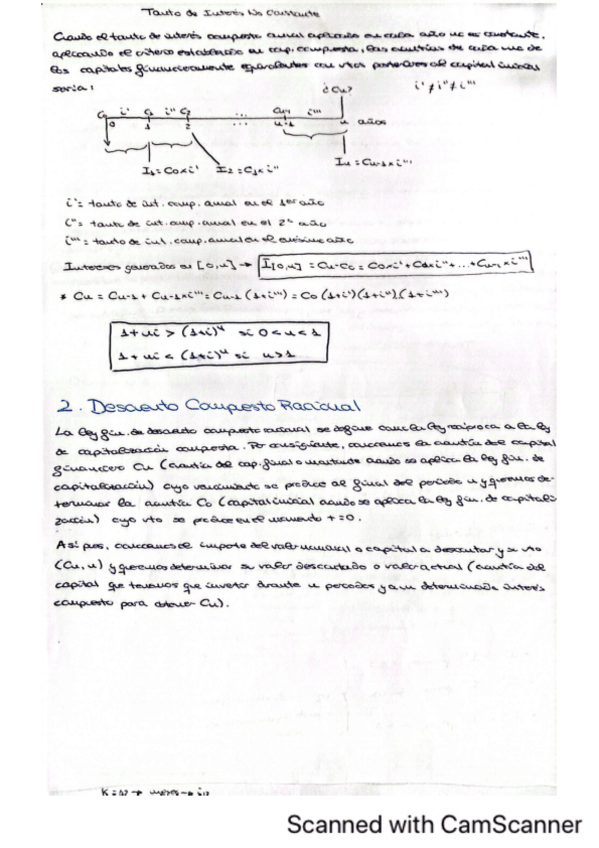 Tanto de Interés No Constante
Cuando el tanto de interés compuesto anual aplicado en cada año no es constante,
aplicando el criterio establecido en cap. compuesta, las cuantías de cada uno de
los capitales financieramente equivalentes con vtos posteriores al capital inicial
sería:
¿Cu? i' ≠ i'' ≠ i'''
C₀ i' C₁ i'' C₂ ... Cu-1 i'''
0 1 2 u-1 u años
I₁ = C₀×i' I₂ = C₁×i'' Iu = Cu-1×i'''
i' = tanto de int. comp. anual en el 1er año
i'' = tanto de int. comp. anual en el 2º año
i''' = tanto de int. comp. anual en el enésimo año
Intereses generados en [0,u] → I[0,u] = Cu-C₀ = C₀×i' + C₁×i'' + ... + Cu-1×i'''
* Cu = Cu-1 + Cu-1×i''' = Cu-1 (1+i''') = C₀ (1+i')(1+i'')(1+i''')
1+ui > (1+i)ᵘ si 0<u<1
1+ui < (1+i)ᵘ si u>1
2. Descuento Compuesto Racional
La ley fin. de descuento compuesto racional se define como la ley recíproca a la ley
de capitalización compuesta. Por consiguiente, conocemos la cuantía del capital
financiero Cu (cuantía del cap. final o montante cuando se aplica la ley fin. de
capitalización) cuyo vencimiento se produce al final del período u y queremos de-
terminar la cuantía C₀ (capital inicial cuando se aplica la ley fin. de capitali-
zación) cuyo vto se produce en el momento t=0.
Así pues, conocemos el importe del valor nominal o capital a descontar y su vto
(Cu, u) y queremos determinar su valor descontado o valor actual (cuantía del
capital que tenemos que invertir durante u períodos y a un determinado interés
compuesto para obtener Cu).
Scanned with CamScanner